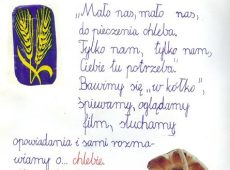 „Mało nas, mało nas,
do pieczenia chleba.
Tylko nam, tylko nam,
Ciebie tu potrzeba."
Bawimy się „w kółko",
śpiewamy, oglądamy
film, słuchamy
opowiadania i sami rozma-
wiamy o... chlebie.